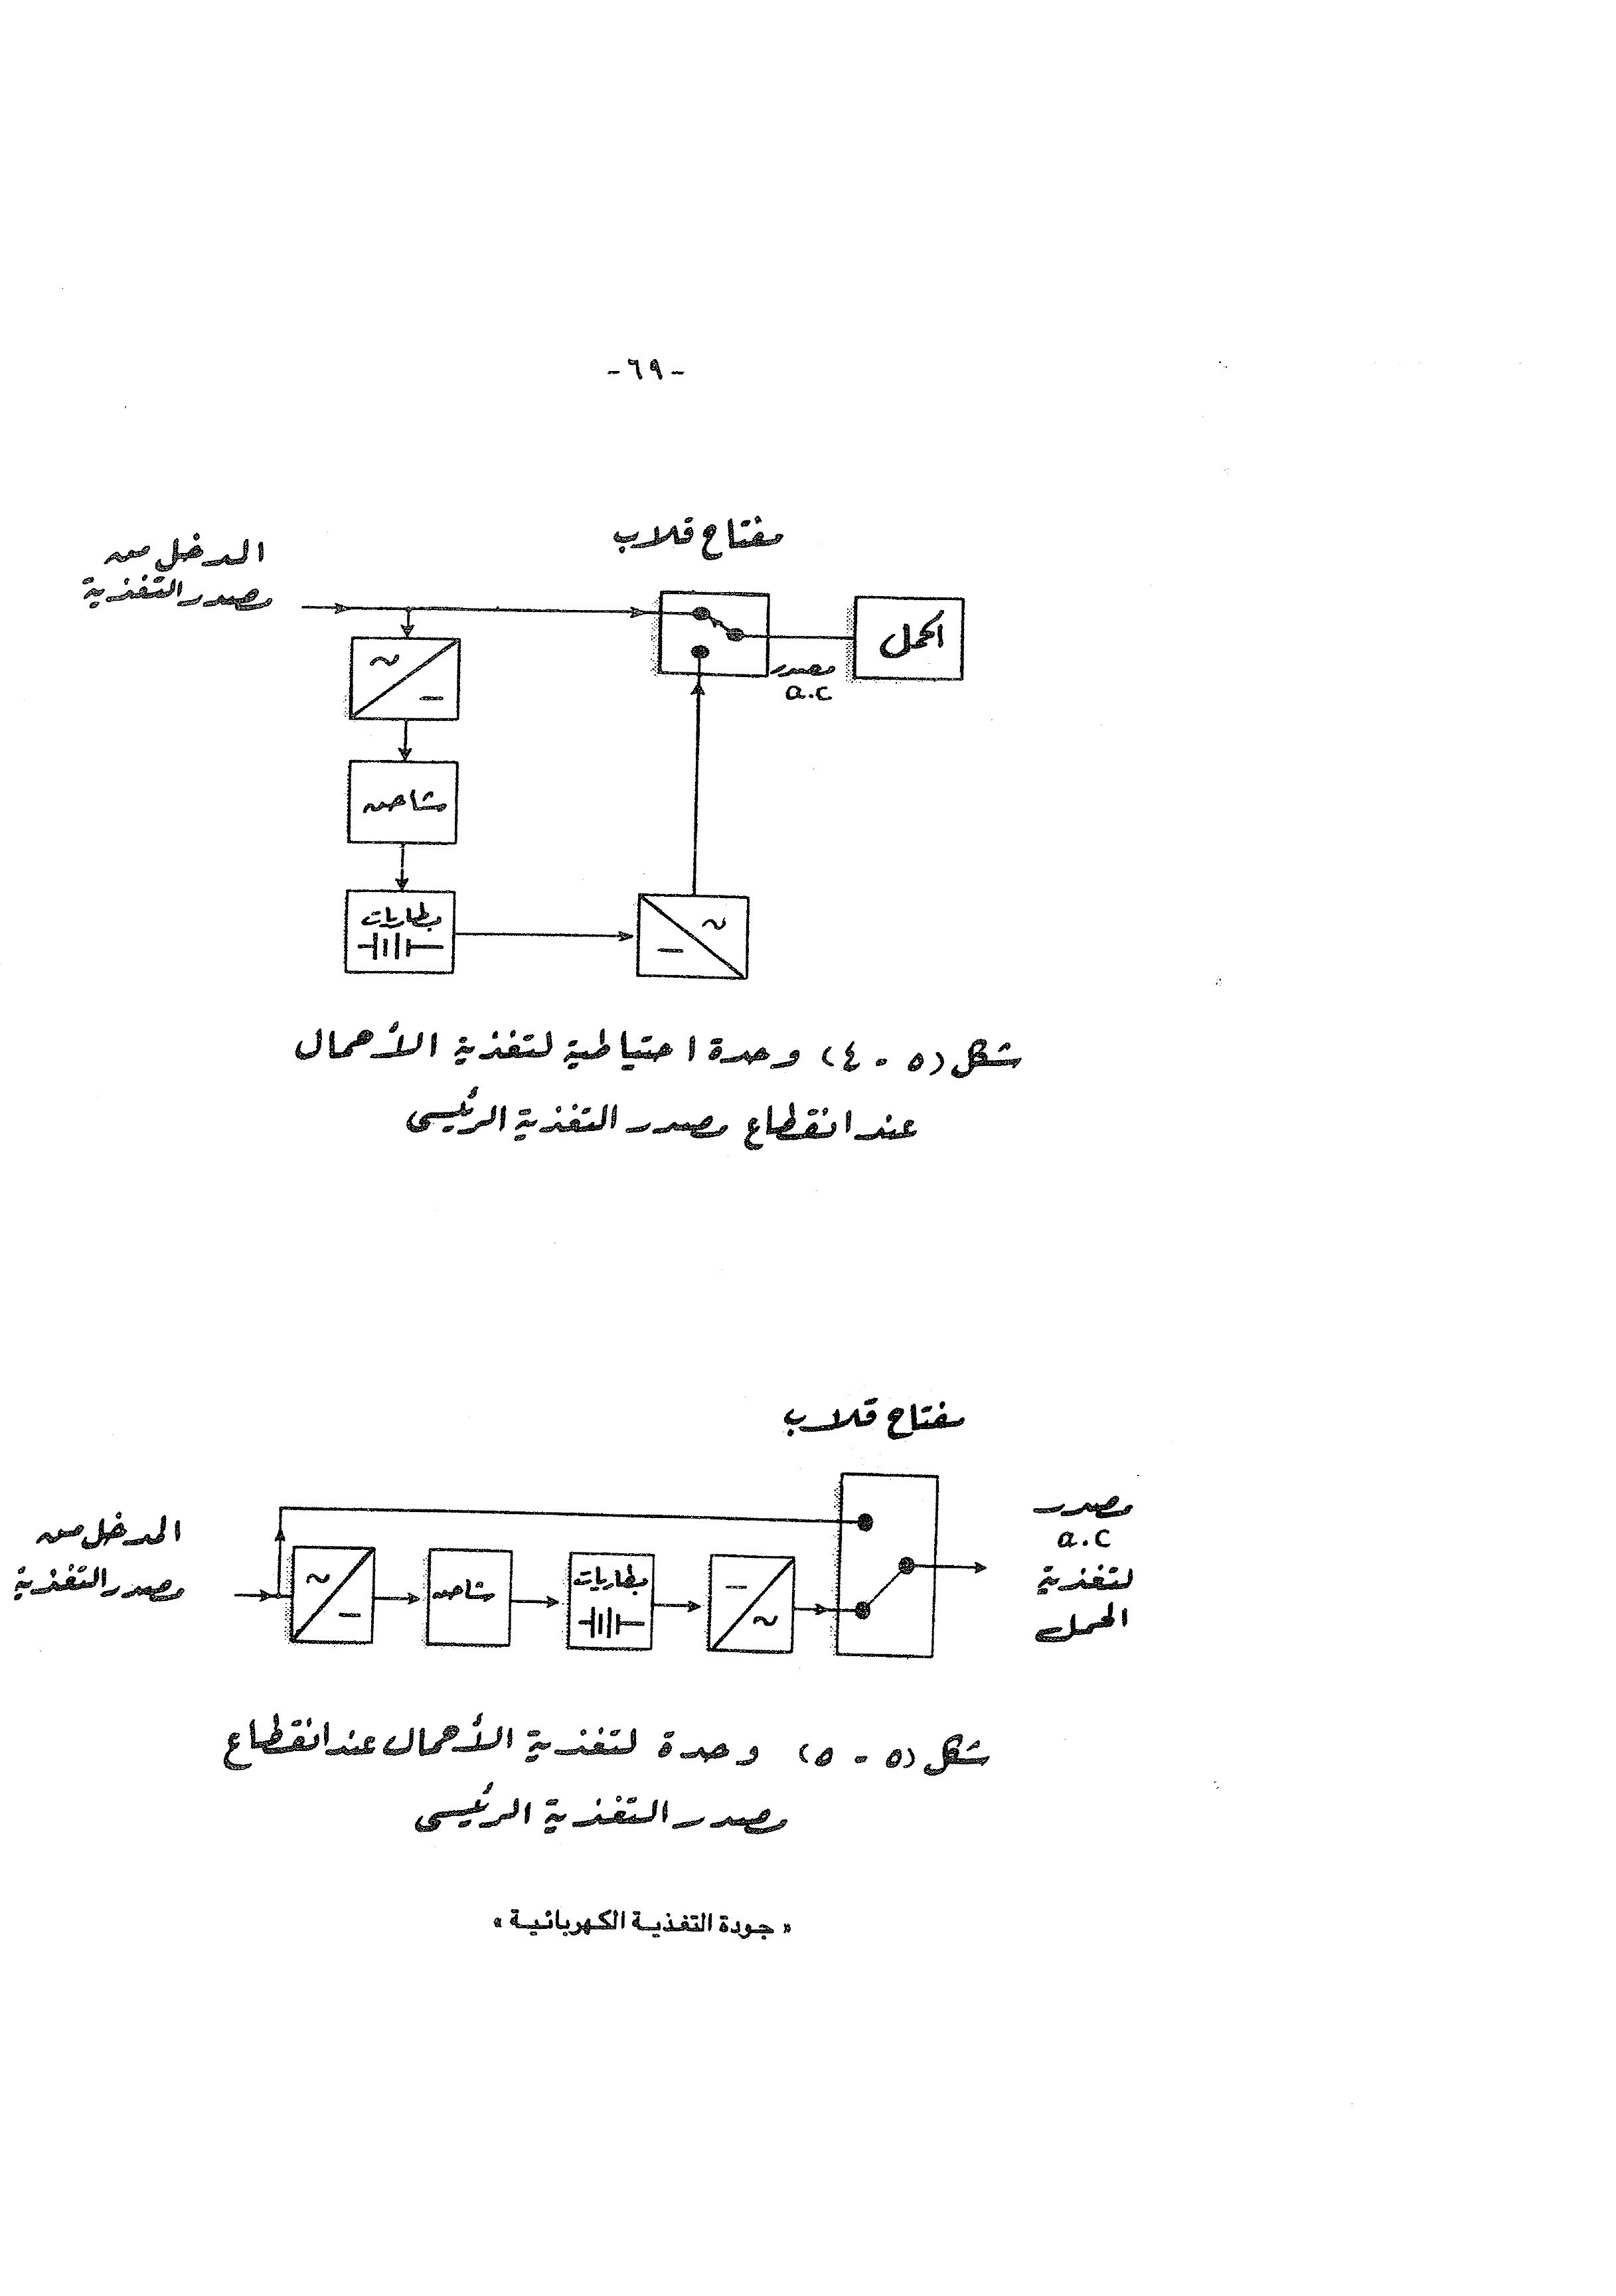 -٦٩-
مفتاح قلاب
المدخل من
مصدر التغذية
الحمل
مصدر
a.c
~
–
شاحن
بطاريات
~
–
شكل (٥ - ٤) وحدة احتياطية لتغذية الأحمال
عند انقطاع مصدر التغذية الرئيسى
مفتاح قلاب
المدخل من
مصدر التغذية
~
–
شاحن
بطاريات
–
~
مصدر
a.c
لتغذية
الحمل
شكل (٥ - ٥) وحدة لتغذية الأحمال عند انقطاع
مصدر التغذية الرئيسى
« جودة التغذية الكهربائية »